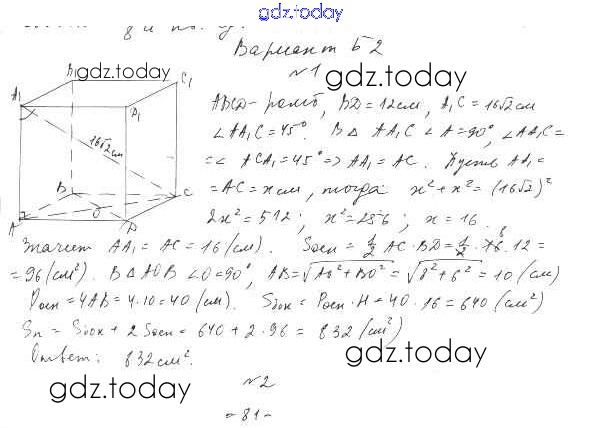 gdz.today
Вариант Б2
№1
A₁ B₁ C₁ D₁ A B C D O 16√2 см
gdz.today
gdz.today
ABCD - ромб, BD = 12 см, A₁C = 16√2 см
∠AA₁C = 45°. В Δ AA₁C ∠A = 90°, ∠AA₁C =
= ∠ ACA₁ = 45° ⇒ AA₁ = AC. Пусть AA₁ =
= AC = x см, тогда x² + x² = (16√2)²
2x² = 512; x² = 256; x = 16.
Значит AA₁ = AC = 16 (см). Sосн = 1/2 AC · BD = 1/2 · 16 · 12 =
= 96 (см²). В Δ AOB ∠O = 90°, AB = √AO² + BO² = √8² + 6² = 10 (см)
Pосн = 4AB = 4 · 10 = 40 (см). Sбок = Pосн · H = 40 · 16 = 640 (см²)
Sп = Sбок + 2 Sосн = 640 + 2 · 96 = 832 (см²)
Ответ: 832 см².
gdz.today
gdz.today
№2
- 81 -